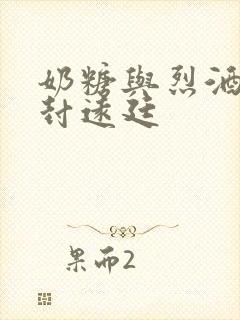 奶糖與烈酒
封遠廷
果而2